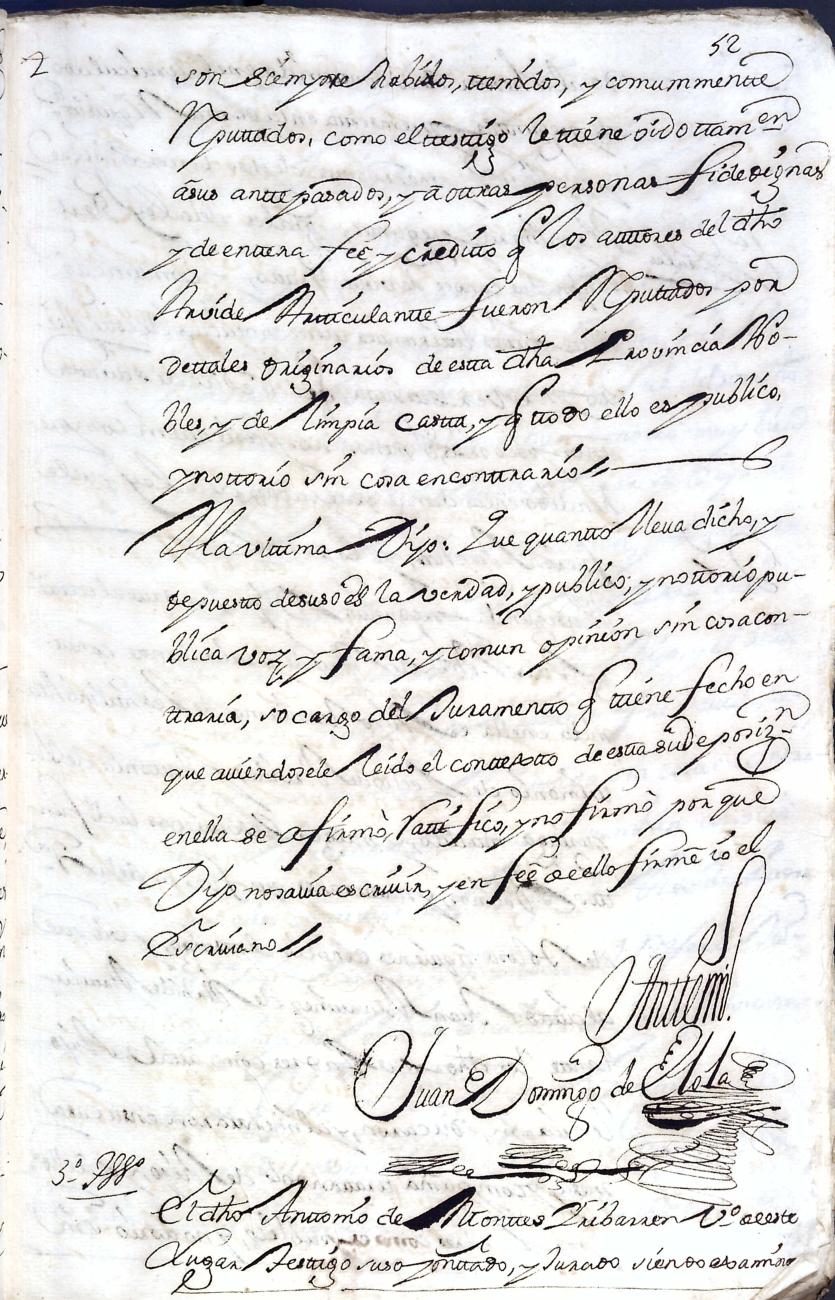 52
son Siempre habidos, ttenidos, y comummentte
Reputtados, como el ttesttigo le ttiene oido ttamen
â sus anttepasados, y â ottras personas fidedignas
y de enttera feê y creditto q los autores del dho
Articulantte fueron Reputtados por
de ttales originarios de estta dha Provincia No-
bles, y de limpia Castta, y q ttodo ello es publico,
y nottorio sin cosa en conttrario //
A la ulttima Dijo: Que quantto lleva dicho, y
depuestto de suso es la verdad, y publico, y nottorio pu-
blica voz, y fama, y comun opinion sin cosa con-
ttraria, so cargo del Juramentto q ttiene fecho en
que aviendosele leido el conttextto de estta su deposizn
en ella se afirmò, Rattificò, y no firmò por que
Dijo no savia escrivir, y en feê de ello firmê io el
Escrivano //
Anttemi.
Juan Domingo de Elola
3º Tgoº
El dho Anttonio de Monttes Iribarren Vº de este
Lugar Testtigo suso, y Jurado siendo examino